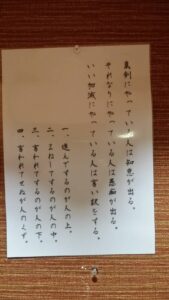 真剣にやっている人は知恵が出る。
それなりにやっている人は愚痴が出る。
いい加減にやっている人は言い訳をする。
一、進んでするのが人の上。
二、まねしてするのが人の中。
三、言われてするのが人の下。
四、言われてせぬが人のくず。